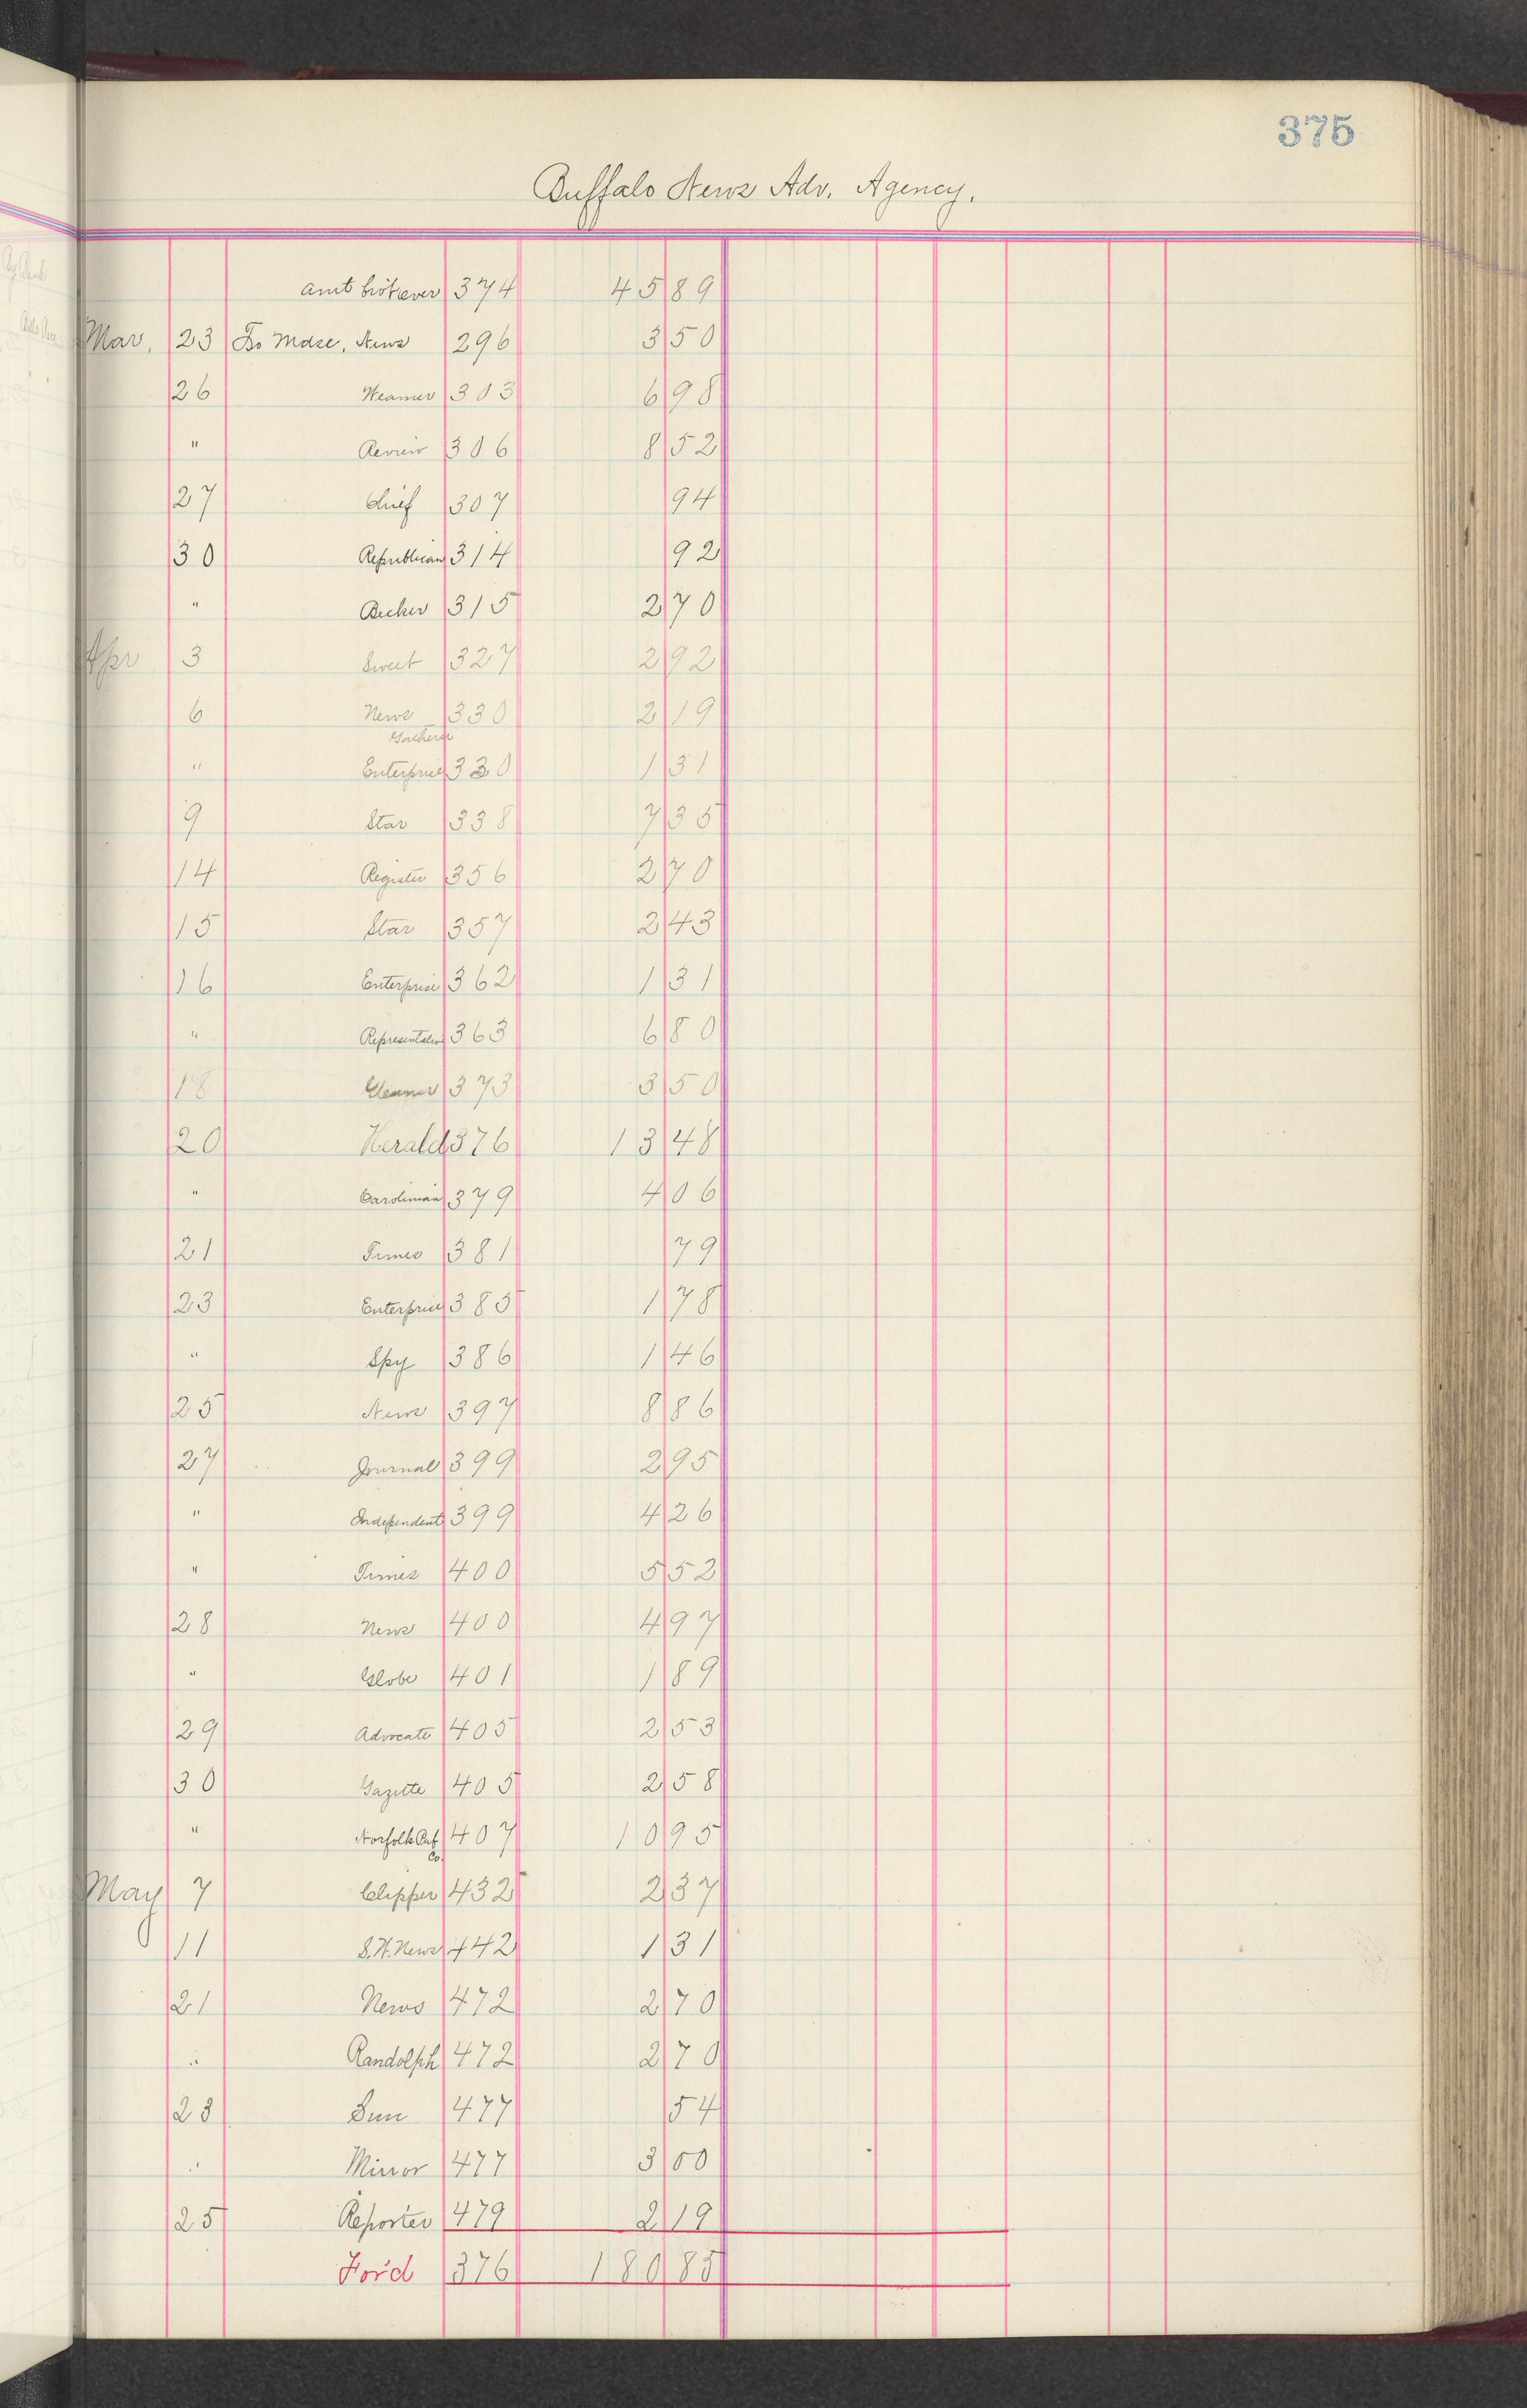 375
Buffalo News Adv. Agency.
amt brot over 374 45 89
Mar. 23 To Mdse, News 296 3 50
26 Weamer 303 6 98
" Review 306 8 52
27 Chief 307 94
30 Republican 314 92
" Becker 315 2 70
Apr 3 Sweet 327 2 92
6 News 330 2 19
Gatherer
" Enterprise 330 1 31
9 Star 338 7 35
14 Register 356 2 70
15 Star 357 2 43
16 Enterprise 362 1 31
" Representative 363 6 80
18 Gleaner 373 3 50
20 Herald 376 13 48
" Carolinian 379 4 06
21 Times 381 79
23 Enterprise 385 1 78
" Spy 386 1 46
25 News 397 8 86
27 Journal 399 2 95
" Independent 399 4 26
" Times 400 5 52
28 News 400 4 97
" Globe 401 1 89
29 Advocate 405 2 53
30 Gazette 405 2 58
" Norfolk Pub 407 10 95
Co.
May 7 Clipper 432 2 37
11 S.H. News 442 1 31
21 News 472 2 70
" Randolph 472 2 70
23 Sun 477 54
" Mirror 477 3 00
25 Reporter 479 2 19
For'd 376 180 85